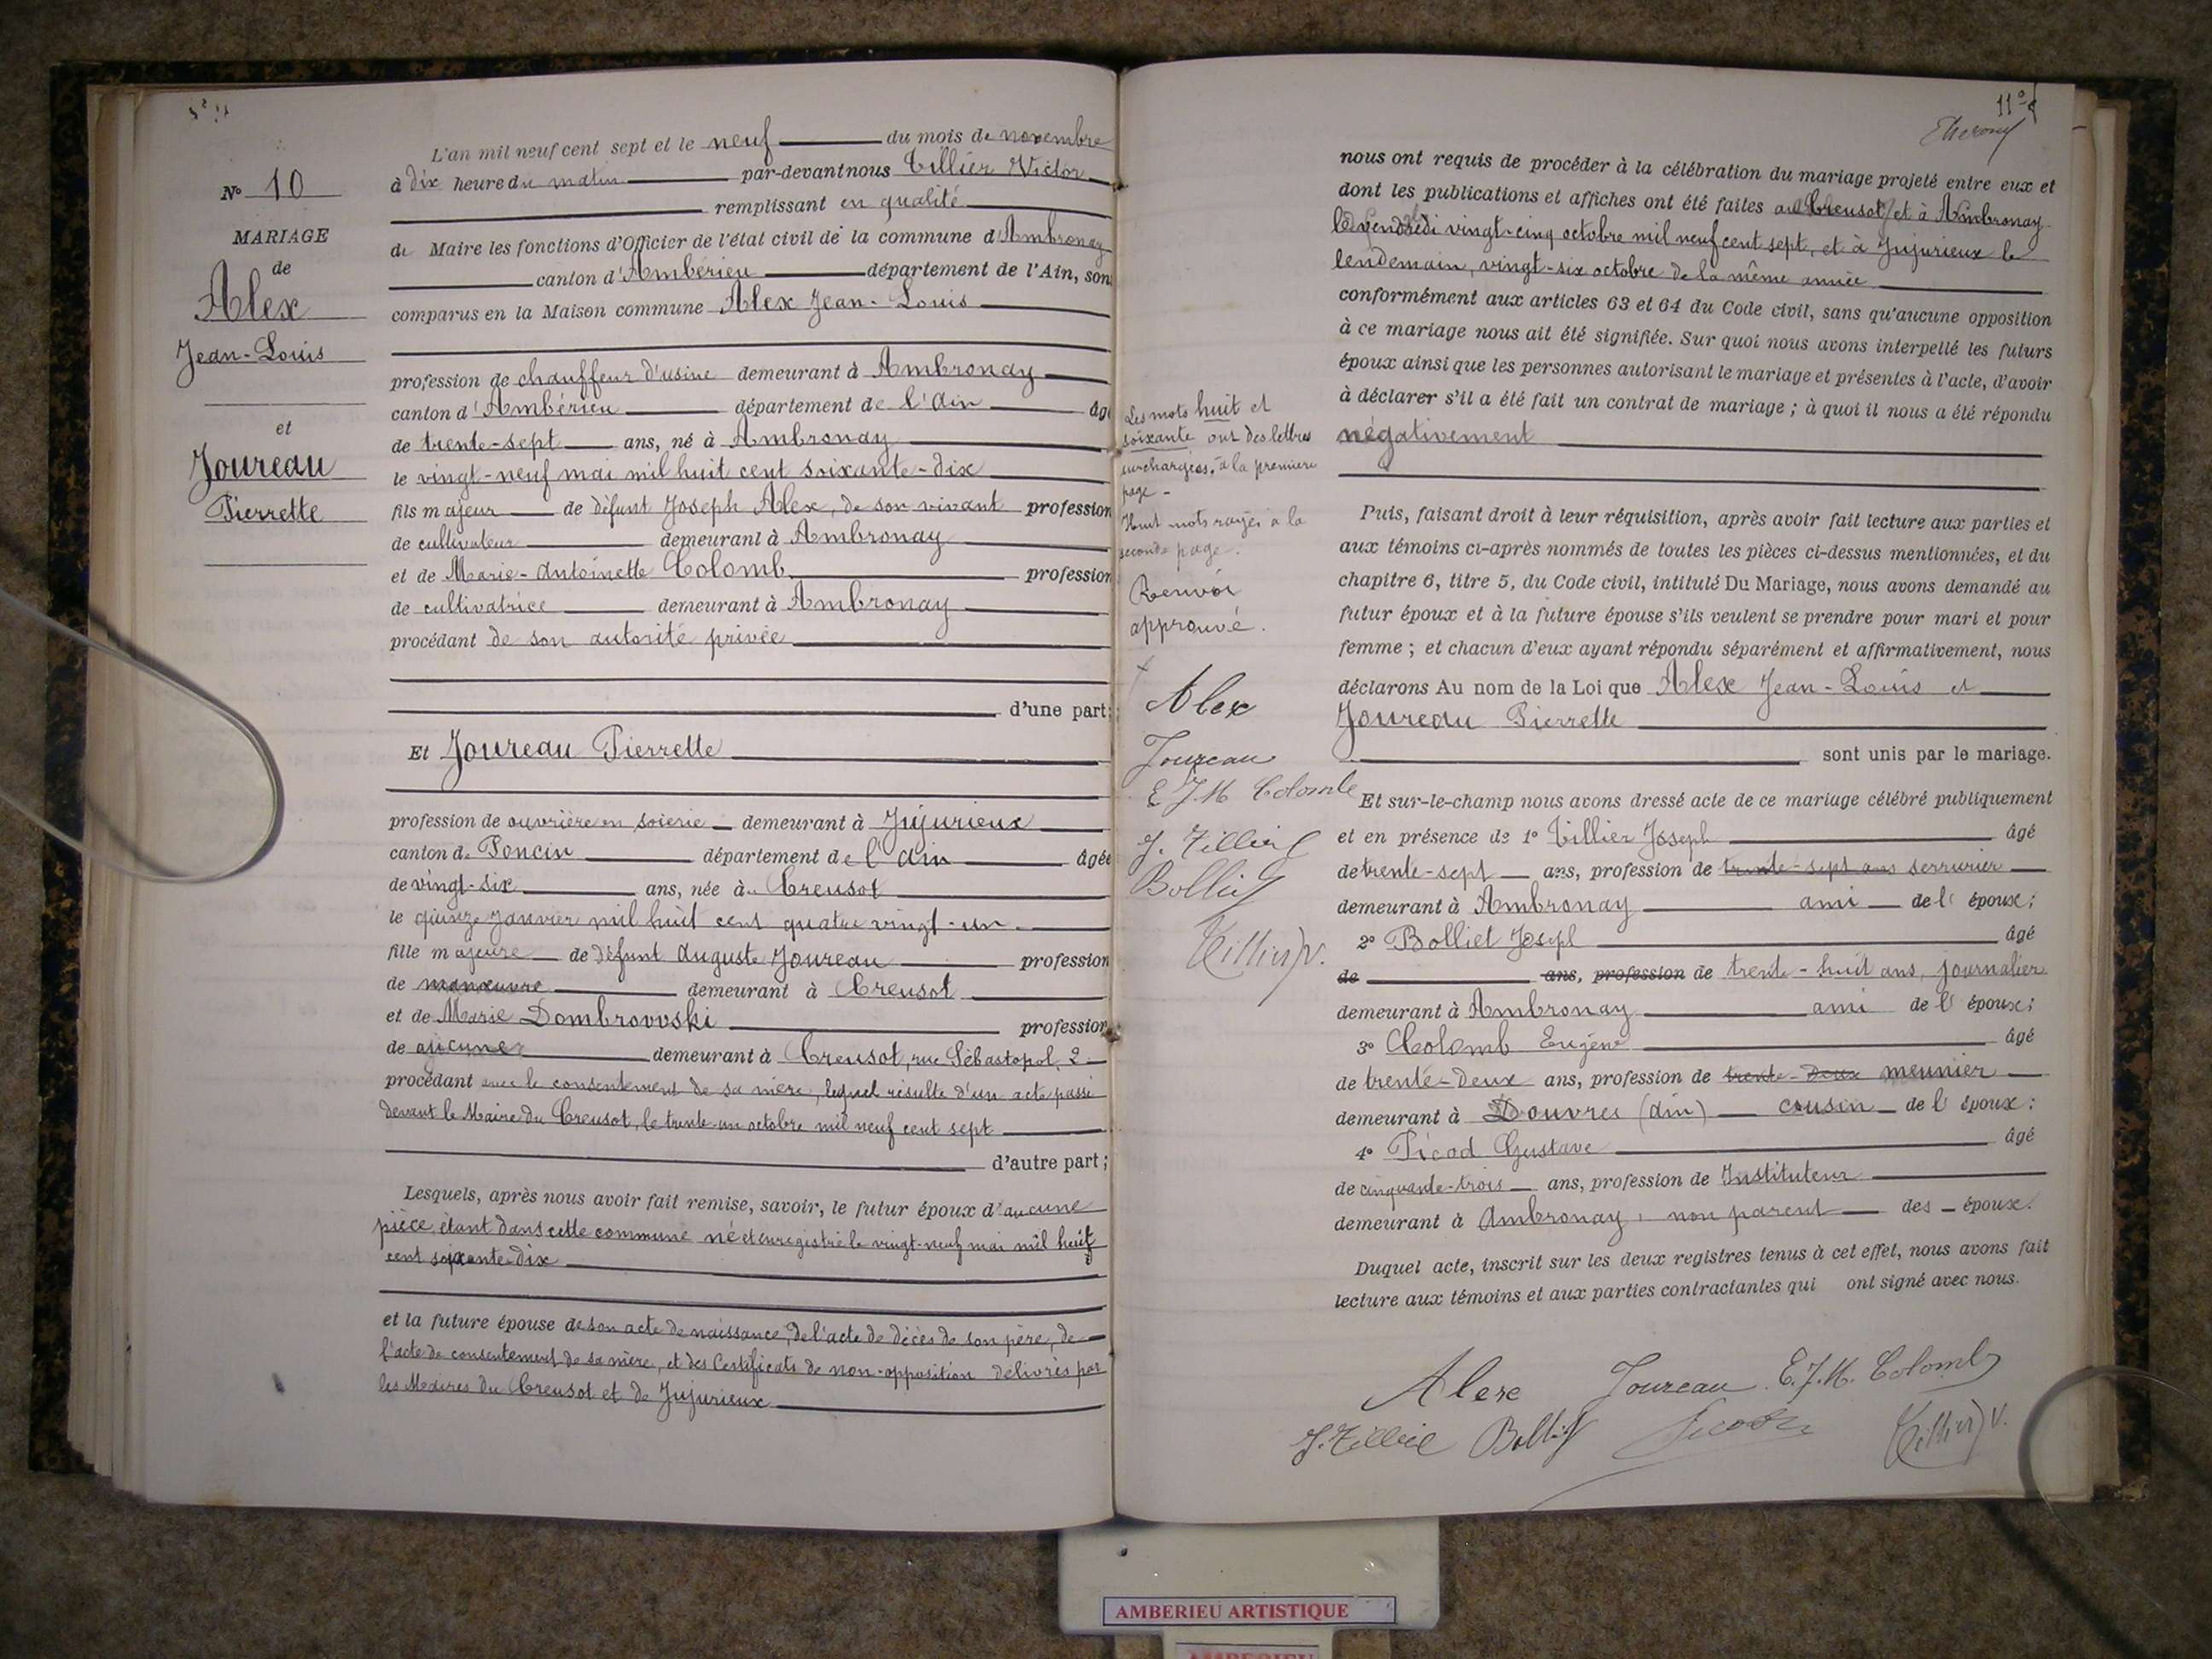 N° 10
MARIAGE
de
Alex
Jean-Louis
et
Joureau
Pierrette
L'an mil neuf cent sept et le neuf du mois de novembre
à dix heure du matin par-devant nous Tillier Victor
remplissant en qualité
de Maire les fonctions d'Officier de l'état civil de la commune d'Ambronay
canton d'Ambérieu département de l'Ain, son
comparus en la Maison commune Alex Jean-Louis
profession de chauffeur d'usine demeurant à Ambronay
canton d'Ambérieu département de l'Ain âgé
de trente-sept ans, né à Ambronay
le vingt-neuf mai mil huit cent soixante-dix
fils majeur de défunt Joseph Alex, de son vivant profession
de cultivateur demeurant à Ambronay
et de Marie-Antoinette Colomb profession
de cultivatrice demeurant à Ambronay
procédant de son autorité privée
d'une part;
Et Joureau Pierrette
profession de ouvrière en soierie demeurant à Jujurieux
canton de Poncin département de l'Ain âgée
de vingt-six ans, née à Creusot
le quinze janvier mil huit cent quatre vingt-un
fille majeure de défunt Auguste Joureau profession
de manœuvre demeurant à Creusot
et de Marie Dombrowski profession
de aucune demeurant à Creusot, rue Sébastopol, 2
procédant avec le consentement de sa mère, lequel résulte d'un acte passé
devant le Maire du Creusot, le trente-un octobre mil neuf cent sept
d'autre part;
Lesquels, après nous avoir fait remise, savoir, le futur époux d'aucune
pièce, étant dans cette commune né et enregistré le vingt-neuf mai mil huit
cent soixante-dix
et la future épouse de son acte de naissance, de l'acte de décès de son père, de
l'acte de consentement de sa mère, et des Certificats de non-opposition délivrés par
les Maires du Creusot et de Jujurieux
11
nous ont requis de procéder à la célébration du mariage projeté entre eux et
dont les publications et affiches ont été faites au Creusot et à Ambronay
le vendredi vingt-cinq octobre mil neuf cent sept, et à Jujurieux le
lendemain, vingt-six octobre de la même année
conformément aux articles 63 et 64 du Code civil, sans qu'aucune opposition
à ce mariage nous ait été signifiée. Sur quoi nous avons interpellé les futurs
époux ainsi que les personnes autorisant le mariage et présentes à l'acte, d'avoir
à déclarer s'il a été fait un contrat de mariage ; à quoi il nous a été répondu
négativement
Puis, faisant droit à leur réquisition, après avoir fait lecture aux parties et
aux témoins ci-après nommés de toutes les pièces ci-dessus mentionnées, et du
chapitre 6, titre 5, du Code civil, intitulé Du Mariage, nous avons demandé au
futur époux et à la future épouse s'ils veulent se prendre pour mari et pour
femme ; et chacun d'eux ayant répondu séparément et affirmativement, nous
déclarons Au nom de la Loi que Alex Jean-Louis et
Joureau Pierrette
sont unis par le mariage.
Et sur-le-champ nous avons dressé acte de ce mariage célébré publiquement
et en présence de 1° Tillier Joseph âgé
de trente-sept ans, profession de trente-sept ans serrurier
demeurant à Ambronay ami de l'époux;
2° Bolliet Joseph âgé
de ans, profession de trente-huit ans, journalier
demeurant à Ambronay ami de l'époux;
3° Colomb Eugène âgé
de trente-deux ans, profession de trente-deux meunier
demeurant à Douvres (Ain) cousin de l'époux:
4° Picod Gustave âgé
de cinquante-trois ans, profession de Instituteur
demeurant à Ambronay, non parent des époux.
Duquel acte, inscrit sur les deux registres tenus à cet effet, nous avons fait
lecture aux témoins et aux parties contractantes qui ont signé avec nous.
Alex Joureau E.J.M. Colomb
J. Tillier Bolliet Picod Tillier V.
Les mots huit et
soixante ont des lettres
surchargées, à la première
page -
Huit mots rayés à la
seconde page.
Renvoi
approuvé.
Alex
Joureau
E J M Colomb
J. Tillier
Bolliet
Tillier V.
AMBERIEU ARTISTIQUE
AMBERIEU